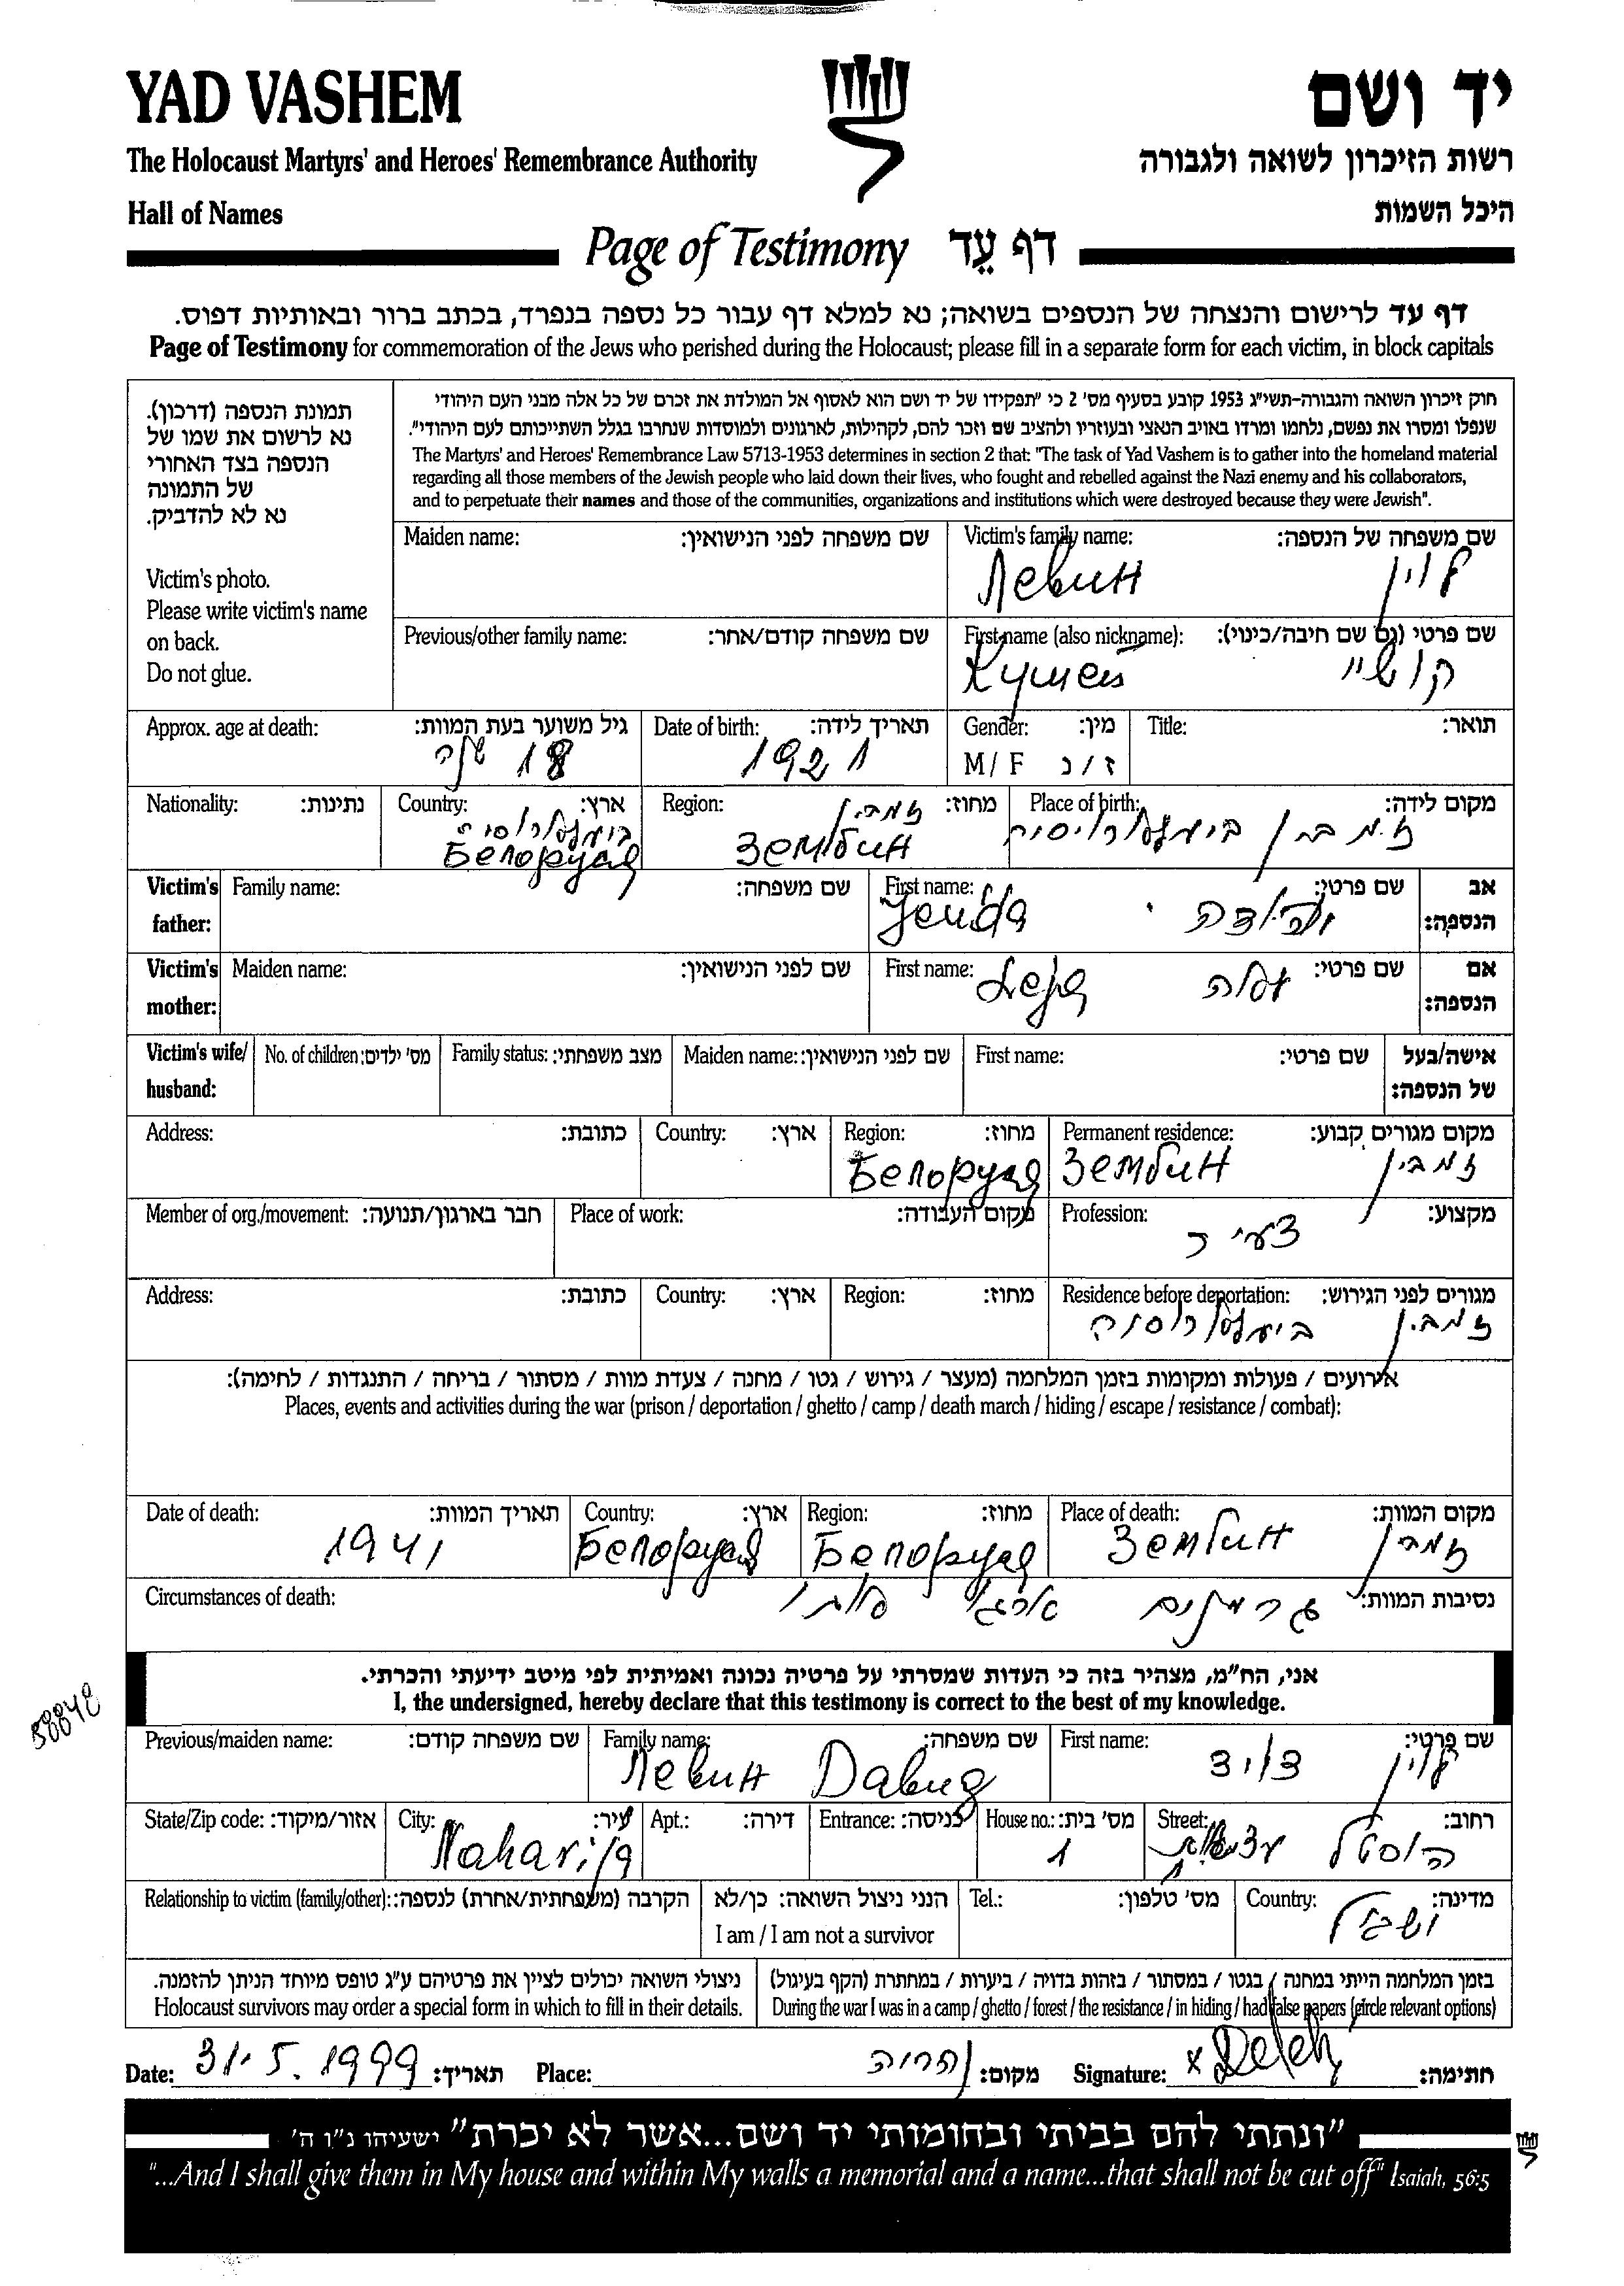 YAD VASHEM
יד ושם
The Holocaust Martyrs' and Heroes' Remembrance Authority
רשות הזיכרון לשואה ולגבורה
Hall of Names
היכל השמות
Page of Testimony דף עֵד
דף עד לרישום והנצחה של הנספים בשואה; נא למלא דף עבור כל נספה בנפרד, בכתב ברור ובאותיות דפוס.
Page of Testimony for commemoration of the Jews who perished during the Holocaust; please fill in a separate form for each victim, in block capitals
תמונת הנספה (דרכון).
נא לרשום את שמו של
הנספה בצד האחורי
של התמונה
נא לא להדביק.
Victim's photo.
Please write victim's name
on back.
Do not glue.
חוק זיכרון השואה והגבורה-תשי"ג 1953 קובע בסעיף מס' 2 כי "תפקידו של יד ושם הוא לאסוף אל המולדת את זכרם של כל אלה מבני העם היהודי
שנפלו ומסרו את נפשם, נלחמו ומרדו באויב הנאצי ובעוזריו ולהציב שם וזכר להם, לקהילות, לארגונים ולמוסדות שנחרבו בגלל השתייכותם לעם היהודי".
The Martyrs' and Heroes' Remembrance Law 5713-1953 determines in section 2 that: "The task of Yad Vashem is to gather into the homeland material
regarding all those members of the Jewish people who laid down their lives, who fought and rebelled against the Nazi enemy and his collaborators,
and to perpetuate their names and those of the communities, organizations and institutions which were destroyed because they were Jewish".
Maiden name: שם משפחה לפני הנישואין: Victim's family name: שם משפחה של הנספה:
Левин לוין
Previous/other family name: שם משפחה קודם/אחר: First name (also nickname): שם פרטי (גם שם חיבה/כינוי):
קושיי
Approx. age at death: גיל משוער בעת המוות: Date of birth: תאריך לידה: Gender: מין: Title: תואר:
18 שנה 1921 M / F ז / נ
Nationality: נתינות: Country: ארץ: Region: מחוז: Place of birth: מקום לידה:
זמבין
Белоруся Зембин זמבין
Victim's father: Family name: שם משפחה: First name: שם פרטי: אב הנספה:
Victim's mother: Maiden name: שם לפני הנישואין: First name: שם פרטי: אם הנספה:
Victim's wife/ husband: No. of children: מס' ילדים: Family status: מצב משפחתי: Maiden name: שם לפני הנישואין: First name: שם פרטי: אישה/בעל של הנספה:
Address: כתובת: Country: ארץ: Region: מחוז: Permanent residence: מקום מגורים קבוע:
Белоруся Зембин זמבין
Member of org./movement: חבר בארגון/תנועה: Place of work: מקום העבודה: Profession: מקצוע:
צעיר
Address: כתובת: Country: ארץ: Region: מחוז: Residence before deportation: מגורים לפני הגירוש:
זמבין
אירועים / פעולות ומקומות בזמן המלחמה (מעצר / גירוש / גטו / מחנה / צעדת מוות / מסתור / בריחה / התנגדות / לחימה):
Places, events and activities during the war (prison / deportation / ghetto / camp / death march / hiding / escape / resistance / combat):
Date of death: תאריך המוות: Country: ארץ: Region: מחוז: Place of death: מקום המוות:
1941 Белоруся Белоруся Зембин זמבין
Circumstances of death: נסיבות המוות:
גרמנים
אני, הח"מ, מצהיר בזה כי העדות שמסרתי על פרטיה נכונה ואמיתית לפי מיטב ידיעתי והכרתי.
I, the undersigned, hereby declare that this testimony is correct to the best of my knowledge.
Previous/maiden name: שם משפחה קודם: Family name: שם משפחה: First name: שם פרטי:
Левин Давид לוין
State/Zip code: אזור/מיקוד: City: עיר: Apt.: דירה: Entrance: כניסה: House no.: מס' בית: Street: רחוב:
1 הוסטל
Relationship to victim (family/other): הקרבה (משפחתית/אחרת) לנספה: הנני ניצול השואה: כן/לא Tel.: מס' טלפון: Country: מדינה:
I am / I am not a survivor
ניצולי השואה יכולים לציין את פרטיהם ע"ג טופס מיוחד הניתן להזמנה.
Holocaust survivors may order a special form in which to fill in their details.
בזמן המלחמה הייתי במחנה / בגטו / במסתור / בזהות בדויה / ביערות / במחתרת (הקף בעיגול)
During the war I was in a camp / ghetto / forest / the resistance / in hiding / had false papers (circle relevant options)
Date: 31.5.1999 תאריך: Place: מקום: Signature: חתימה:
"ונתתי להם בביתי ובחומותי יד ושם...אשר לא יכרת" ישעיהו נ"ו ה'
"...And I shall give them in My house and within My walls a memorial and a name...that shall not be cut off" Isaiah, 56:5